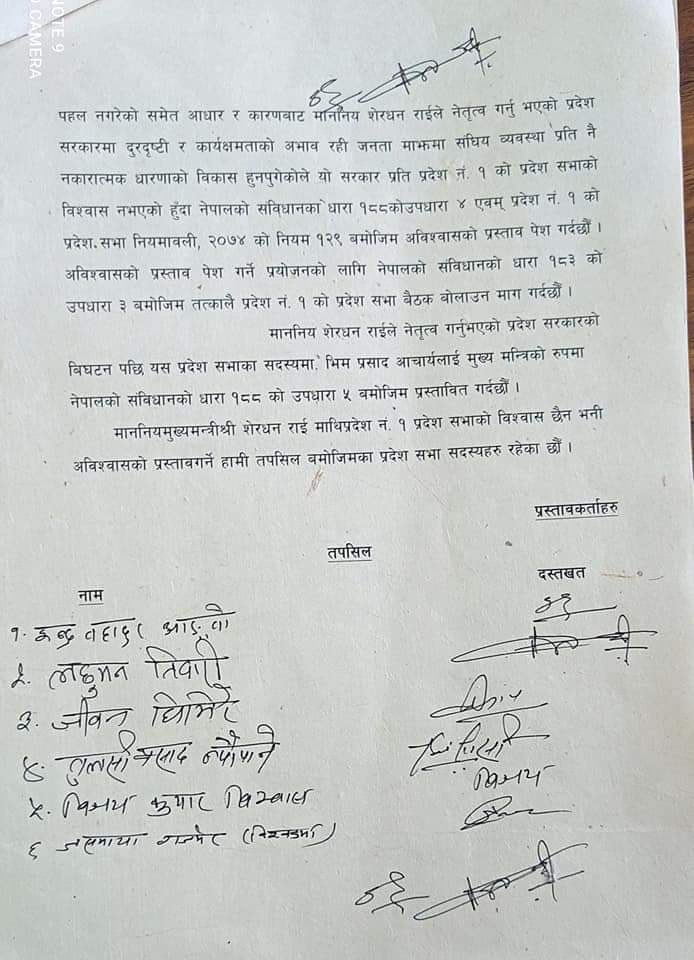 NOTE 9
CAMERA
पहल नगरेको समेत आधार र कारणबाट माननिय शेरधन राईले नेतृत्व गर्नु भएको प्रदेश
सरकारमा दुरदृष्टी र कार्यक्षमताको अभाव रही जनता माझमा संघिय व्यवस्था प्रति नै
नकारात्मक धारणाको विकास हुनपुगेकोले यो सरकार प्रति प्रदेश नं. १ को प्रदेश सभाको
विश्वास नभएको हुँदा नेपालको संविधानको धारा १८८कोउपधारा ४ एवम् प्रदेश नं. १ को
प्रदेश सभा नियमावली, २०७४ को नियम १२९ बमोजिम अविश्वासको प्रस्ताव पेश गर्दछौं ।
अविश्वासको प्रस्ताव पेश गर्ने प्रयोजनको लागि नेपालको संविधानको धारा १८३ को
उपधारा ३ बमोजिम तत्कालै प्रदेश नं. १ को प्रदेश सभा बैठक बोलाउन माग गर्दछौं ।
माननिय शेरधन राईले नेतृत्व गर्नुभएको प्रदेश सरकारको
विघटन पछि यस प्रदेश सभाका सदस्यमा. भिम प्रसाद आचार्यलाई मुख्य मन्त्रिको रुपमा
नेपालको संविधानको धारा १८८ को उपधारा ५ बमोजिम प्रस्तावित गर्दछौं ।
माननियमुख्यमन्त्रीश्री शेरधन राई माथिप्रदेश नं. १ प्रदेश सभाको विश्वास छैन भनी
अविश्वासको प्रस्तावगर्ने हामी तपसिल बमोजिमका प्रदेश सभा सदस्यहरु रहेका छौं ।
प्रस्तावकर्ताहरु
तपसिल
नाम दस्तखत
१. इन्द्र बहादुर आङ्बो
२. लछुमन तिवारी
३. जीवन घिमिरे
४. तुलसी प्रसाद न्यौपाने
५. विजय कुमार विश्वास विजय
६ जसमाया गजमेर (विश्वकर्मा)